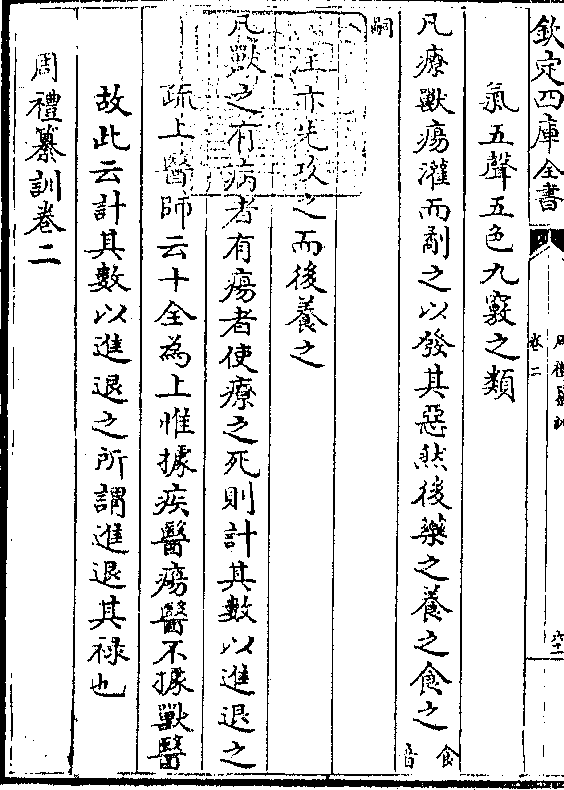 欽定四庫全書
周禮纂訓
卷二
六十一
氣五聲五色九竅之類
凡療獸瘍灌而劀之以發其惡然後藥之養之食之食音
嗣
亦先攻之而後養之
凡獸之有病者有瘍者使療之死則計其數以進退之
疏上醫師云十全為上惟據疾醫瘍醫不據獸醫
故此云計其數以進退之所謂進退其祿也
周禮纂訓卷二